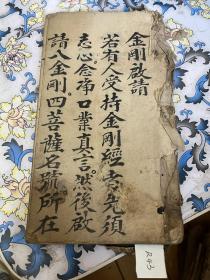 金剛啟請
若有人受持金剛經者先須
志心念淨口業真言然後啟
請八金剛四菩薩名號所在